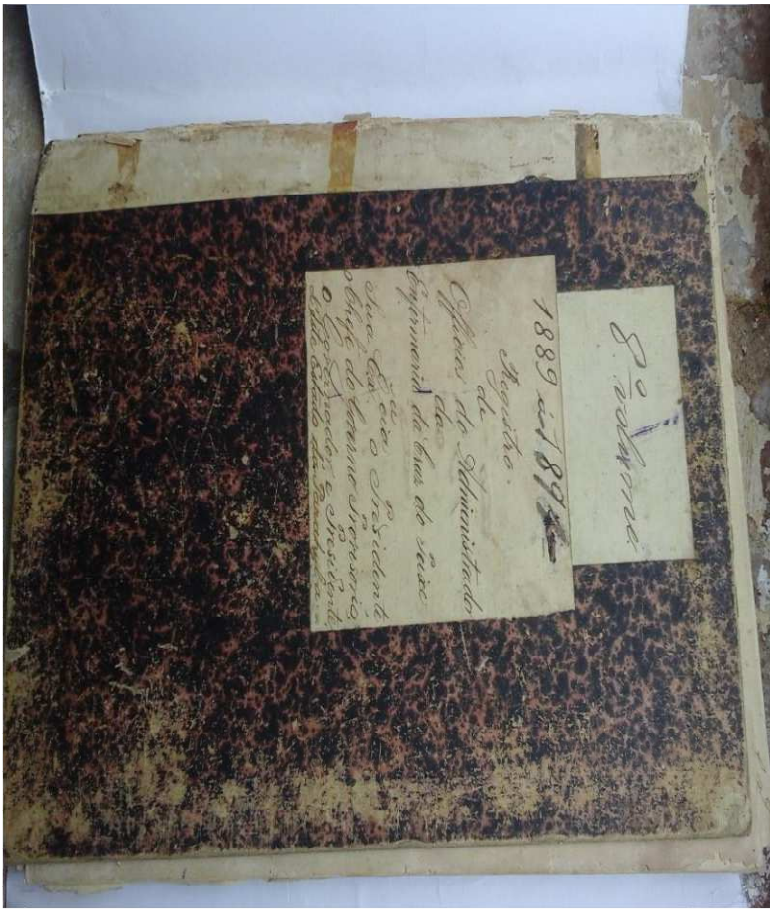 8º volume
1889 a 189
Registro
de
Officios do Administrador
da
Enfermeria da Cruz do Peixe
a
Sua Exª. o Presidente
o Chefe do Governo Provisorio
o Governador e Presidente
Estado da Parahyba